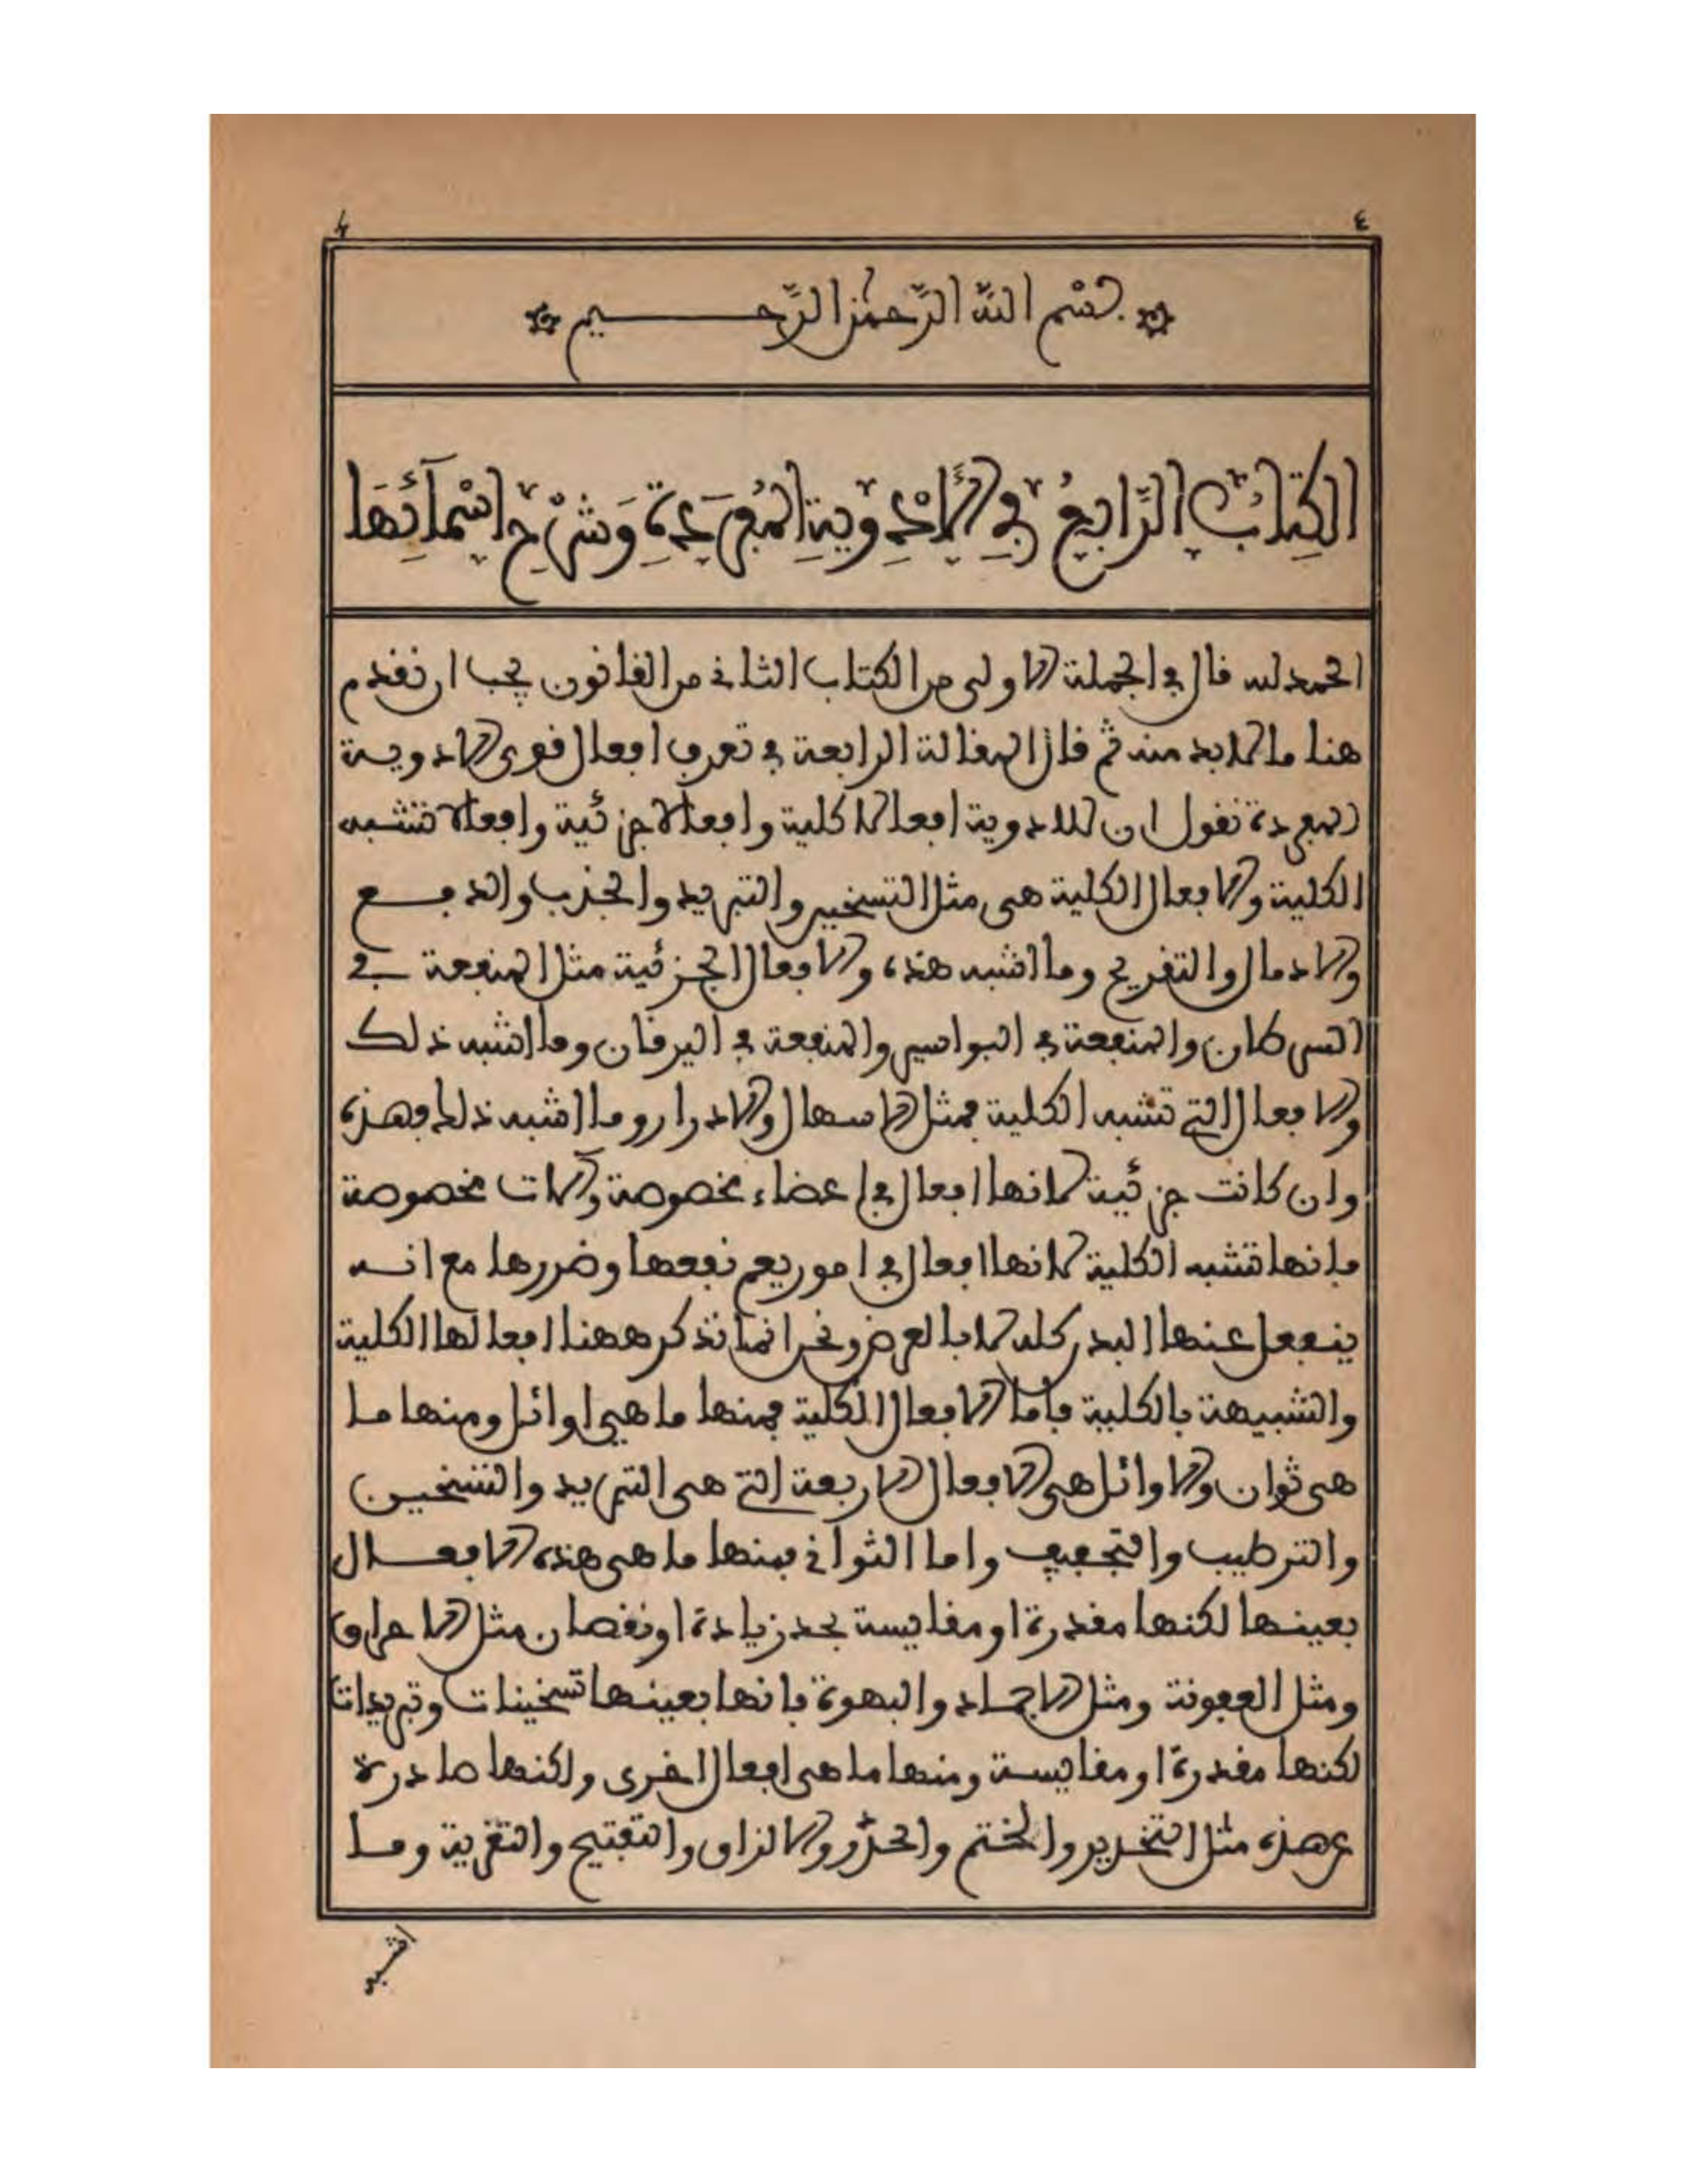 ٤ 4
بسم الله الرحمن الرحيم
الكِتَابُ الرَّابِعُ فِي الأَدْوِيَةِ المُفْرَدَةِ وَشَرْحِ اسْمَآئِهَا
الحمد لله قال في الجملة الاولى من الكتاب الثاني من القانون يجب ان نقدم
هنا ما لا بد منه ثم قال المقالة الرابعة في تعرف افعال قوى الادوية
المفردة نقول ان للادوية افعالا كلية وافعالا جزئية وافعالا تشبه
الكلية والافعال الكلية هي مثل التسخين والتبريد والجذب والدفع
والادمال والتقريح وما اشبه هذه والافعال الجزئية مثل المنفعة في
السرطان والمنفعة في البواسير والمنفعة في اليرقان وما اشبه ذلك
والافعال التي تشبه الكلية فمثل الاسهال والادرار وما اشبه ذلك فهذه
وان كانت جزئية لانها افعال في اعضاء مخصوصة والات مخصوصة
فانها تشبه الكلية لانها افعال في امور يعم نفعها وضررها مع انه
ينفعل عنها البدن كله لا بالعرض ونحن انما نذكر ههنا افعالها الكلية
والشبيهة بالكلية فاما الافعال الكلية فمنها ما هي اوائل ومنها ما
هي ثوان والاوائل هي الافعال الاربعة التي هي التبريد والتسخين
والترطيب والتجفيف واما الثواني فمنها ما هي هذه الافعال
بعينها لكنها مقدرة او مقايسة بحد زيادة او نقصان مثل الاحراق
ومثل العفونة ومثل الاجماد والبهوة فانها بعينها تسخينات وتبريدات
لكنها مقدرة او مقايسة ومنها ما هي افعال اخرى ولكنها صادرة
عن هذه مثل التخدير والختم والحذر والالزاق والتفتيح والتغرية وما
اشبه